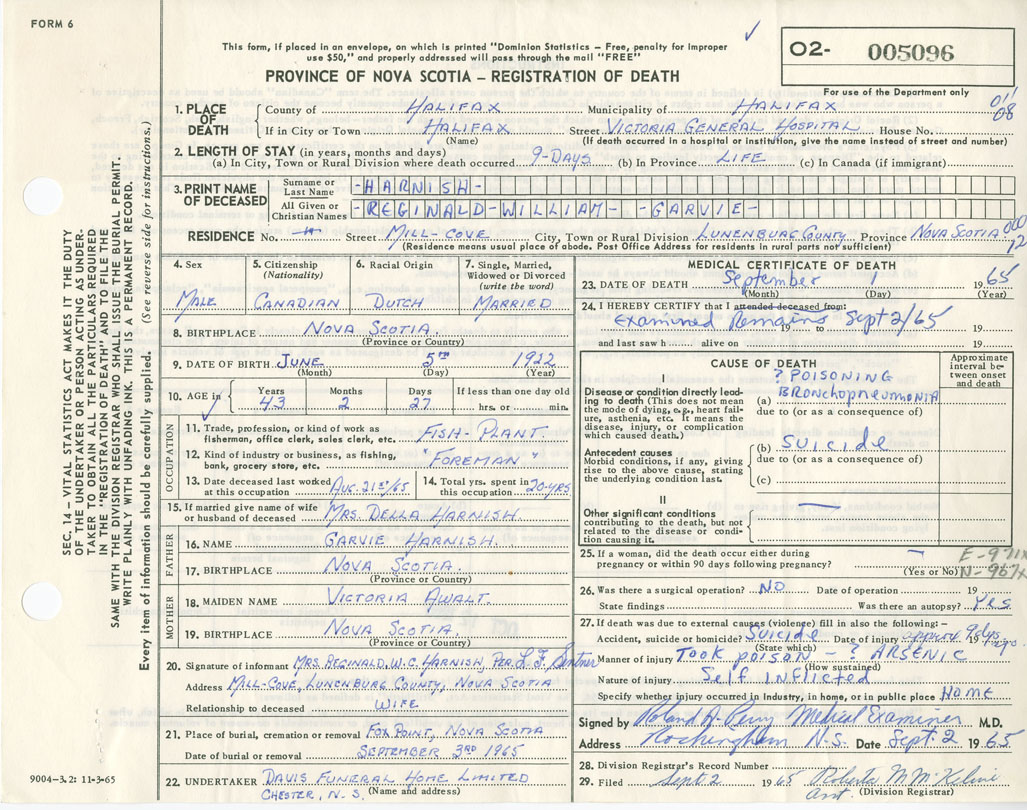 FORM 6
This form, if placed in an envelope, on which is printed "Dominion Statistics — Free, penalty for improper
use $50," and properly addressed will pass through the mail "FREE"
PROVINCE OF NOVA SCOTIA — REGISTRATION OF DEATH
✓
O2- 005096
For use of the Department only
011
08
1. PLACE OF DEATH
County of HALIFAX Municipality of HALIFAX
If in City or Town HALIFAX Street VICTORIA GENERAL HOSPITAL House No.
(Name) (If death occurred in a hospital or institution, give the name instead of street and number)
2. LENGTH OF STAY (in years, months and days)
(a) In City, Town or Rural Division where death occurred 9-DAYS (b) In Province LIFE (c) In Canada (if immigrant)
3. PRINT NAME OF DECEASED
Surname or Last Name -HARNISH-
All Given or Christian Names -REGINALD-WILLIAM- -GARVIE-
RESIDENCE No. Street MILL-COVE City, Town or Rural Division LUNENBURG COUNTY Province NOVA SCOTIA
(Residence means usual place of abode. Post Office Address for residents in rural parts not sufficient)
000
12
4. Sex
MALE
5. Citizenship (Nationality)
CANADIAN
6. Racial Origin
DUTCH
7. Single, Married, Widowed or Divorced (write the word)
MARRIED
8. BIRTHPLACE NOVA SCOTIA.
(Province or Country)
9. DATE OF BIRTH JUNE 5TH 1922
(Month) (Day) (Year)
10. AGE in
Years 43 Months 2 Days 27 If less than one day old
hrs. or min.
OCCUPATION
11. Trade, profession, or kind of work as fisherman, office clerk, sales clerk, etc. FISH-PLANT.
12. Kind of industry or business, as fishing, bank, grocery store, etc. "FOREMAN"
13. Date deceased last worked at this occupation AUG. 21ST/65
14. Total yrs. spent in this occupation 20-YRS
15. If married give name of wife or husband of deceased MRS. DELLA HARNISH
FATHER
16. NAME GARVIE HARNISH.
17. BIRTHPLACE NOVA SCOTIA.
(Province or Country)
MOTHER
18. MAIDEN NAME VICTORIA AWALT.
19. BIRTHPLACE NOVA SCOTIA.
(Province or Country)
20. Signature of informant MRS. REGINALD. W.G. HARNISH, PER. L.F.
Address MILL-COVE, LUNENBURG COUNTY, NOVA SCOTIA
Relationship to deceased WIFE
21. Place of burial, cremation or removal FOX POINT, NOVA SCOTIA
Date of burial or removal SEPTEMBER 3RD 1965
22. UNDERTAKER DAVIS FUNERAL HOME LIMITED
CHESTER, N.S. (Name and address)
MEDICAL CERTIFICATE OF DEATH
23. DATE OF DEATH September 1 1965
(Month) (Day) (Year)
24. I HEREBY CERTIFY that I attended deceased from:
Examined Remains 19 to Sept 2/65 19
and last saw h alive on 19
CAUSE OF DEATH
Approximate interval between onset and death
I
Disease or condition directly leading to death (This does not mean the mode of dying, e.g., heart failure, asthenia, etc. It means the disease, injury, or complication which caused death.)
? POISONING
(a) BRONCHOPNEUMONIA
due to (or as a consequence of)
Antecedent causes
Morbid conditions, if any, giving rise to the above cause, stating the underlying condition last.
(b) SUICIDE
due to (or as a consequence of)
(c)
II
Other significant conditions contributing to the death, but not related to the disease or condition causing it.
—
25. If a woman, did the death occur either during pregnancy or within 90 days following pregnancy? —
(Yes or No)
E-971X
N-967X
26. Was there a surgical operation? NO Date of operation 19
State findings Was there an autopsy? Yes
27. If death was due to external causes (violence) fill in also the following:-
Accident, suicide or homicide? Suicide Date of injury approx 9 dys ago. 19
(State which)
Manner of injury TOOK POISON - ? ARSENIC
(How sustained)
Nature of injury Self Inflicted
Specify whether injury occurred in industry, in home, or in public place HOME
Signed by Roland A. Perry Medical Examiner M.D.
Address Rockingham N.S. Date Sept. 2 1965
28. Division Registrar's Record Number
29. Filed Sept 2 1965 Roberta M.
Asst. (Division Registrar)
SEC. 14 — VITAL STATISTICS ACT MAKES IT THE DUTY
OF THE UNDERTAKER OR PERSON ACTING AS UNDER-
TAKER TO OBTAIN ALL THE PARTICULARS REQUIRED
IN THE "REGISTRATION OF DEATH" AND TO FILE THE
SAME WITH THE DIVISION REGISTRAR WHO SHALL ISSUE THE BURIAL PERMIT.
WRITE PLAINLY WITH UNFADING INK. THIS IS A PERMANENT RECORD.
Every item of information should be carefully supplied. (See reverse side for instructions.)
9004-3.2: 11-3-65